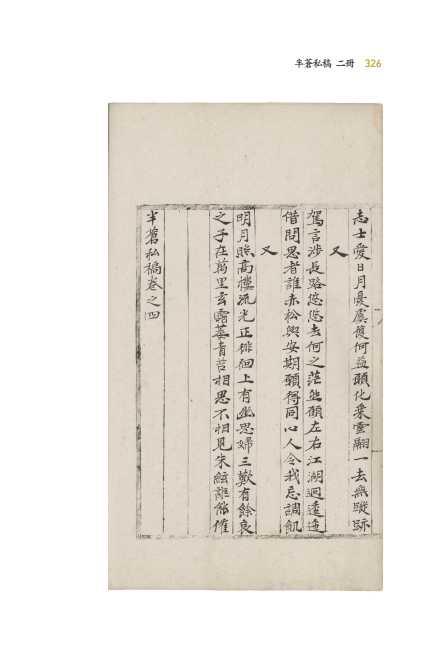 半蒼私稿 二冊 326
志士愛日月憂虞復何益願化乘雲翮一去無蹤跡
又
駕言涉長路悠悠去何之茫然顧左右江湖迥逶迤
借問思者誰赤松與安期願得同心人令我忘調飢
又
明月照高樓流光正徘徊上有幽思婦三歎有餘哀
之子在萬里玄霜萎青苔相思不相見朱絃誰能催
半蒼私稿卷之四